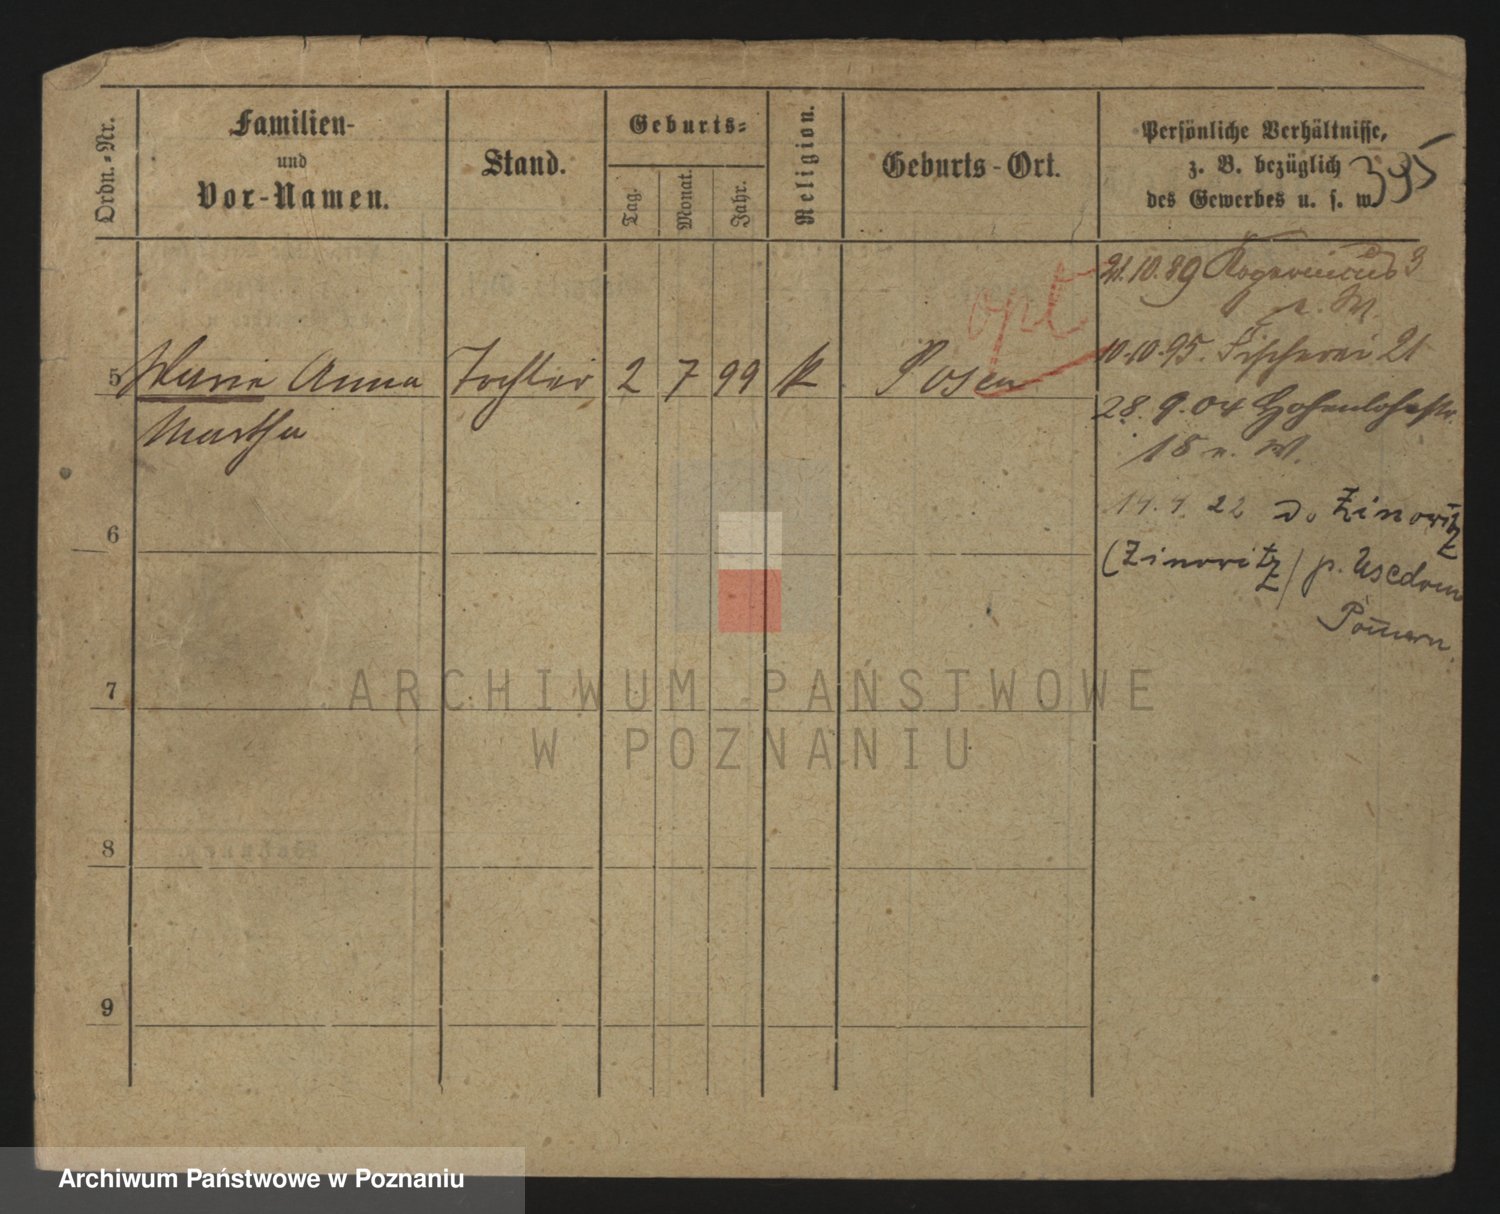 Ordn.-Nr.
Familien-
und
Vor-Namen.
Stand.
Geburts-
Tag.
Monat.
Jahr.
Religion.
Geburts-Ort.
Persönliche Verhältnisse,
z. B. bezüglich
des Gewerbes u. s. w.
395
21.10.89 3
n. W.
opt
10.10.95. Fischerei 21
5 Marie Anna Tochter 2 7 99 k Posen
Martha
28.9.04 Hohenlohestr.
18 n. W.
22 Zinowitz
(Zinovitz) p. Usedom
Pom̄ern.
6
7
8
9
ARCHIWUM PAŃSTWOWE
W POZNANIU
Archiwum Państwowe w Poznaniu